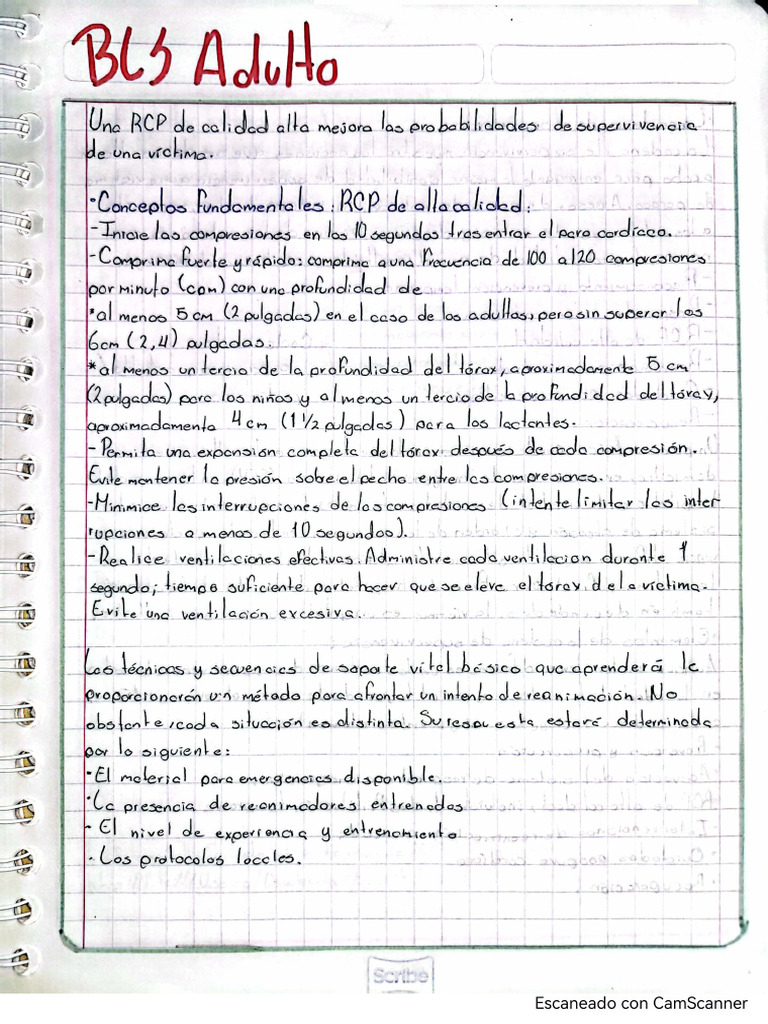 BLS Adulto
Una RCP de calidad alta mejora las probabilidades de supervivencia
de una víctima.
·Conceptos Fundamentales: RCP de alta calidad:
-Inicie las compresiones en los 10 segundos tras entrar el paro cardíaco.
-Comprima fuerte y rápido: comprima a una frecuencia de 100 a 120 compresiones
por minuto (cpm) con una profundidad de
*al menos 5 cm (2 pulgadas) en el caso de los adultos, pero sin superar los
6cm (2,4) pulgadas.
*al menos un tercio de la profundidad del tórax, aproximadamente 5 cm
(2 pulgadas) para los niños y al menos un tercio de la profundidad del tórax,
aproximadamente 4 cm (1 1/2 pulgadas) para los lactantes.
-Permita una expansión completa del tórax después de cada compresión.
Evite mantener la presión sobre el pecho entre las compresiones.
-Minimice las interrupciones de las compresiones (intente limitar las inter
rupciones a menos de 10 segundos).
-Realice ventilaciones efectivas. Administre cada ventilación durante 1
segundo; tiempo suficiente para hacer que se eleve el tórax de la víctima.
Evite una ventilación excesiva.
Las técnicas y secuencias de soporte vital básico que aprenderá le
proporcionarán un método para afrontar un intento de reanimación. No
obstante, cada situación es distinta. Su respuesta estará determinada
por lo siguiente:
·El material para emergencias disponible.
·La presencia de reanimadores entrenados
- El nivel de experiencia y entrenamiento
- Los protocolos locales.
Scribe
Escaneado con CamScanner